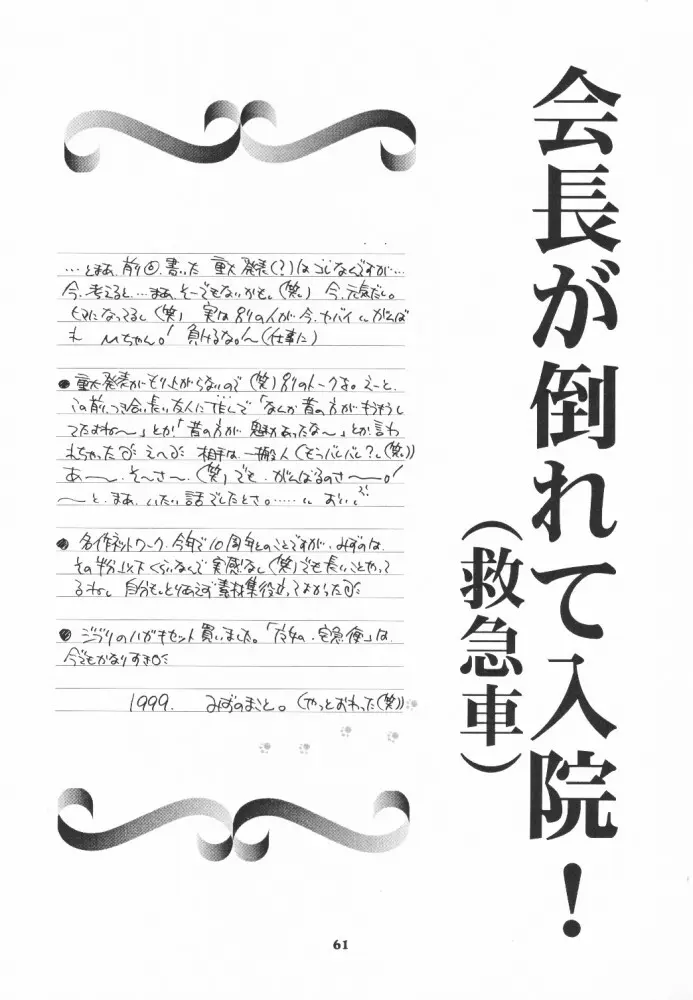 会長が倒れて入院!
(救急車)
…とまあ、前回、書いた 重大発表(?)はコレなんですが…
今、考えると…まあ、そーでもないかも。(笑)。今、元気だし。
ヒマになってるし(笑) 実は別の人が今、ヤバイ。がんば
れ Mちゃん。! 負けるな。!〜(仕事に)
●重大発表がもり上がらないので(笑)別のトークを。えーと、
この前、つき合い長い友人に 「なんか昔の方がもうもうし
てたよね〜」とか「昔の方が魅力あったな〜」とか言わ
れちゃった えへ 相手は、一般人(もうバレバレ?。(笑。))
あ〜、そ〜さ〜、(笑)でも、がんばるのさ〜。!
〜と、まあ、いたい話でしたとさ。…… おいい
●名作ネットワーク、今年で10周年とのことですが、みずのは、
その半分以下くらいなんで実感なし(笑)でも長いことやって
るわね。自分も、とりあえず素材集役立ってよかった
●ジブリのハガキセット買いました。「魔女の宅急便」は、
今でもかなりすき
1999. みずのまこと。(やっとおわった(笑))
61